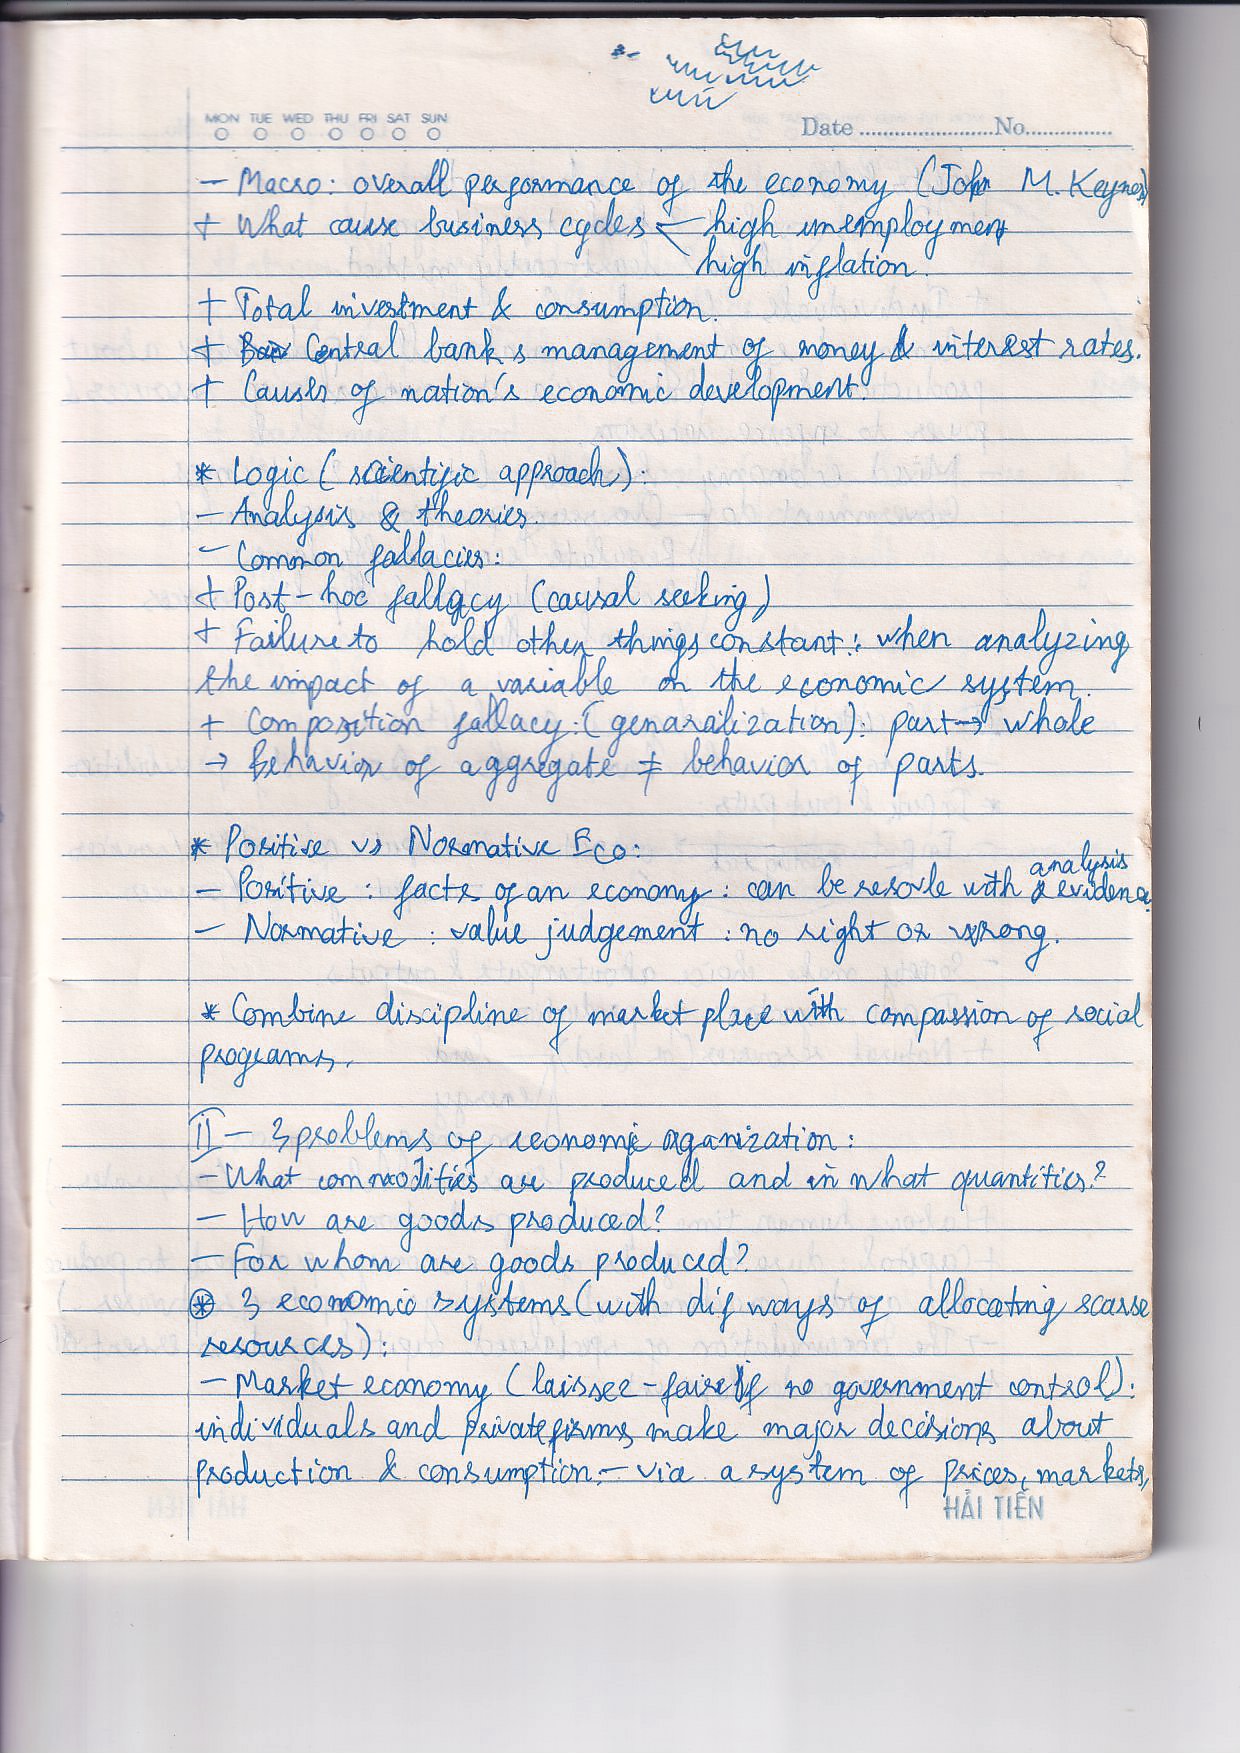 MON TUE WED THU FRI SAT SUN
Date ........................No...............
- Macro: overall performance of the economy (John M. Keynes)
+ What cause business cycles high unemployment
high inflation.
+ Total investment & consumption.
+ Central bank's management of money & interest rates.
+ Causes of nation's economic development.
* Logic (scientific approach):
- Analysis & theories.
- Common fallacies:
+ Post-hoc fallacy (causal seeking)
+ Failure to hold other things constant: when analyzing
the impact of a variable on the economic system.
+ Composition fallacy: (genaralization): part → whole
→ Behavior of aggregate ≠ behavior of parts.
* Positive vs Normative Eco:
analysis
- Positive : facts of an economy : can be resovle with & evidence.
- Normative : value judgement : no right or wrong.
* Combine discipline of market place with compassion of social
programs.
II - 3 problems of economic organization:
- What commodities are produced and in what quantities?
- How are goods produced?
- For whom are goods produced?
⊛ 3 economic systems (with dif ways of allocating scarse
resources):
- Market economy (laissez-faire if no government control):
individuals and private firms make major decisions about
production & consumption:- via a system of prices, markets,
HẢI TIẾN